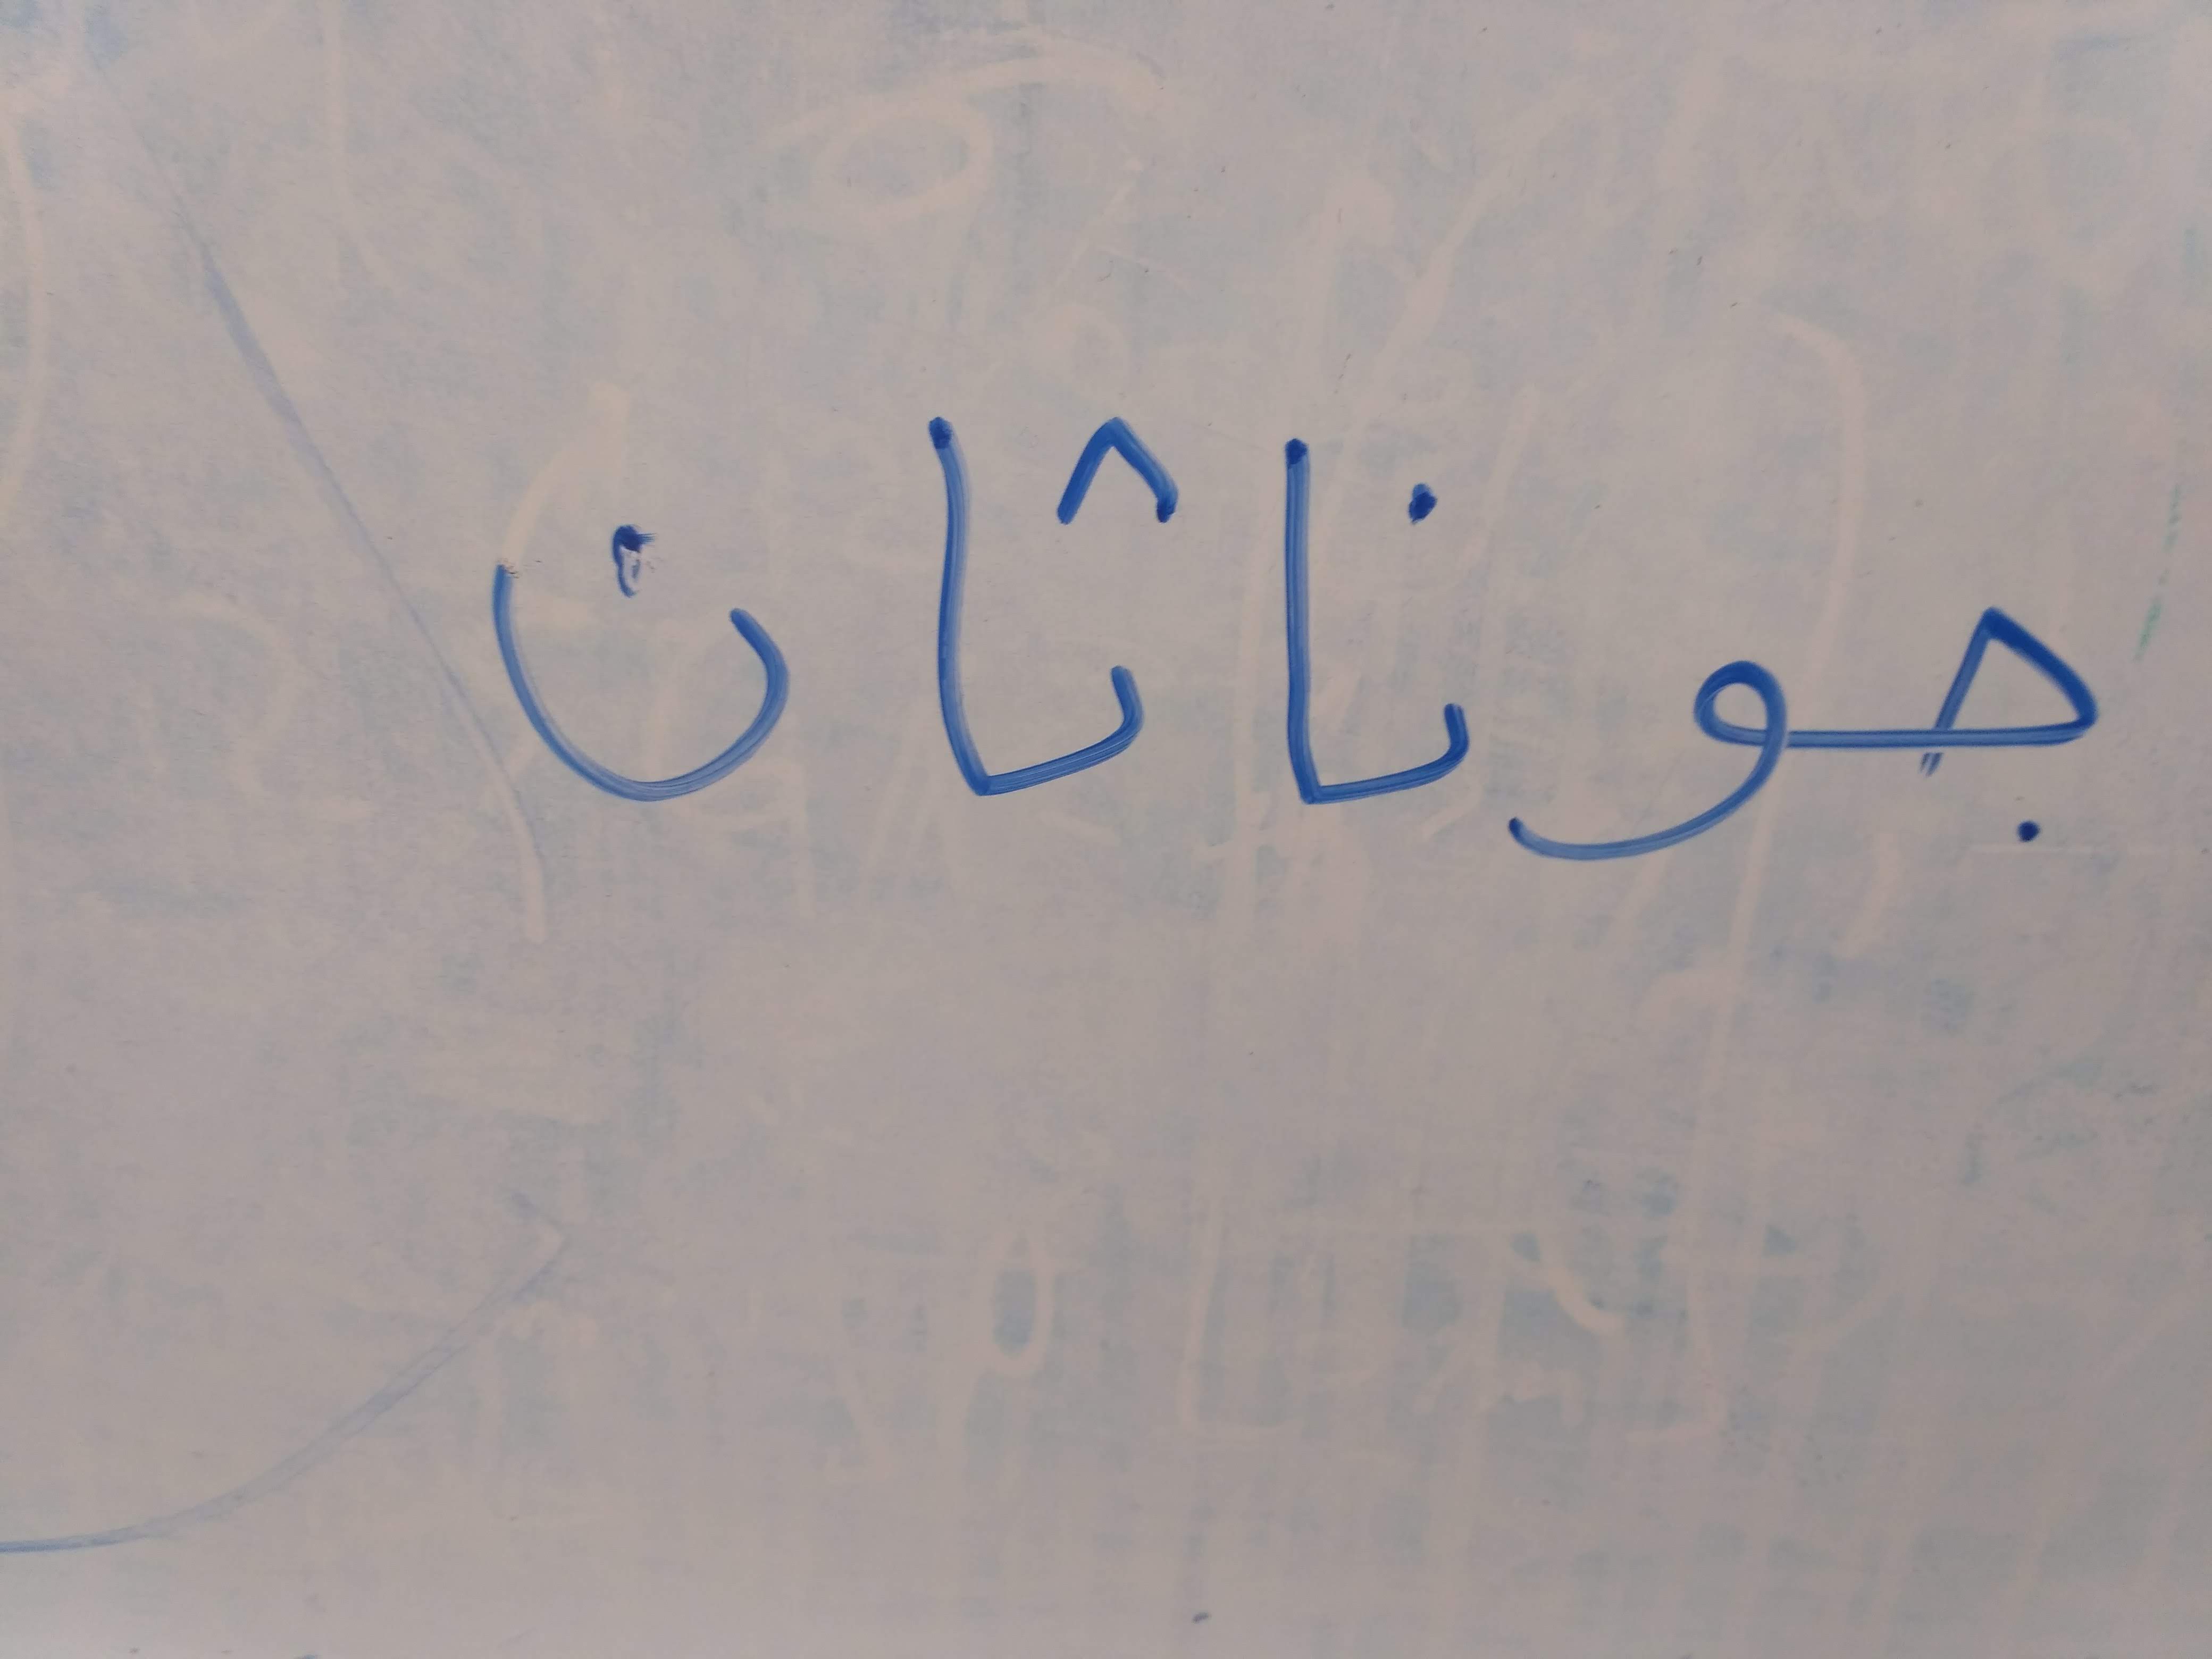 جوناثان